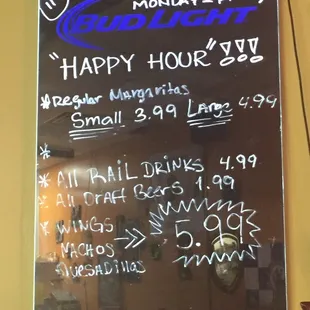 MONDAY
BUD LIGHT
"HAPPY HOUR"!!!
* Regular Margaritas
Small 3.99 Large 4.99
*
* All RAIL DRINKS 4.99
* All Draft Beers 1.99
* WINGS
NACHOS
5.99
Quesadillas